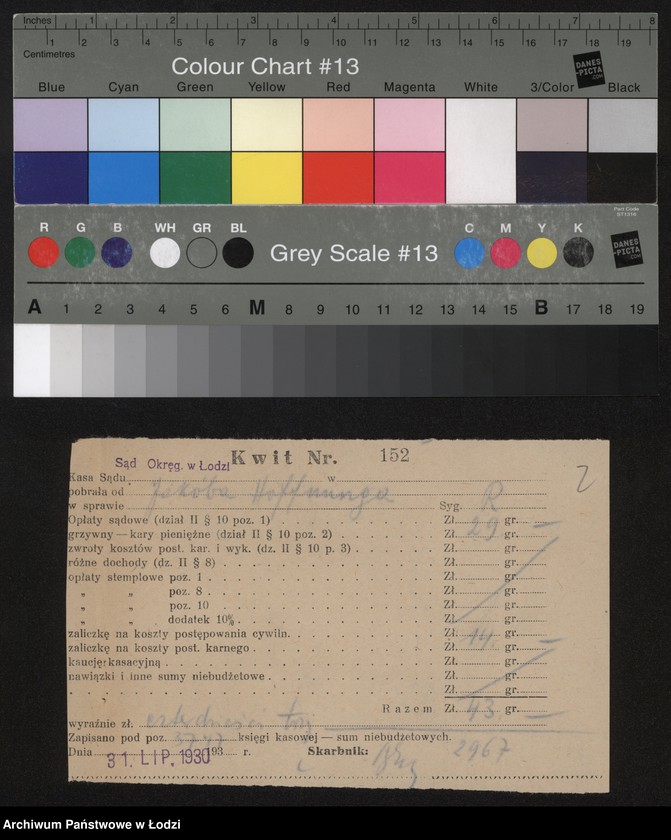 Inches 1 2 3 4 5 6 7 8
Centimetres 1 2 3 4 5 6 7 8 9 10 11 12 13 14 15 16 17 18 19
Colour Chart #13
DANES
-PICTA
.COM
Blue Cyan Green Yellow Red Magenta White 3/Color Black
Part Code
ST1316
R G B WH GR BL Grey Scale #13 C M Y K
DANES
-PICTA
.COM
A 1 2 3 4 5 6 M 8 9 10 11 12 13 14 15 B 17 18 19
Sąd Okręg. w Łodzi Kwit Nr. 152
2
Kasa Sądu w
pobrała od Jakóba Hoffnunga
w sprawie Syg. R
Opłaty sądowe (dział II § 10 poz. 1) Zł. 29 gr. —
grzywny — kary pieniężne (dział II § 10 poz. 2) Zł. gr.
zwroty kosztów post. kar. i wyk. (dz. II § 10 p. 3) Zł. gr.
różne dochody (dz. II § 8) Zł. gr.
opłaty stemplowe poz. 1 Zł. gr.
„ „ poz. 8 Zł. gr.
„ „ poz. 10 Zł. gr.
„ „ dodatek 10% Zł. gr.
zaliczkę na koszty postępowania cywiln. Zł. 14 gr. —
zaliczkę na koszty post. karnego Zł. gr.
kaucję kasacyjną Zł. gr.
nawiązki i inne sumy niebudżetowe Zł. gr.
Zł. gr.
Razem Zł. 43 gr. —
wyraźnie zł. czterdzieści trzy
Zapisano pod poz. księgi kasowej — sum niebudżetowych.
Dnia 31. LIP. 1930 193 r. Skarbnik: 2967
Archiwum Państwowe w Łodzi